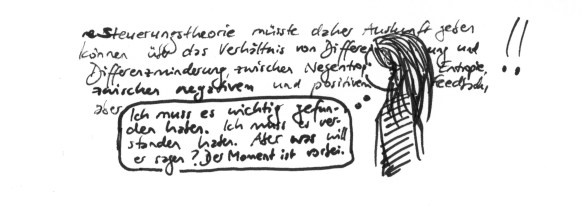 Steuerungstheorie müsste daher Auskunft geben
können über das Verhältnis von und
Differenzminderung, zwischen Entropie,
zwischen negativem und positivem Feedback,
aber
!!
Ich muss es wichtig gefun-
den haben. Ich muss es ver-
standen haben. Aber was will
er sagen? Der Moment ist vorbei.